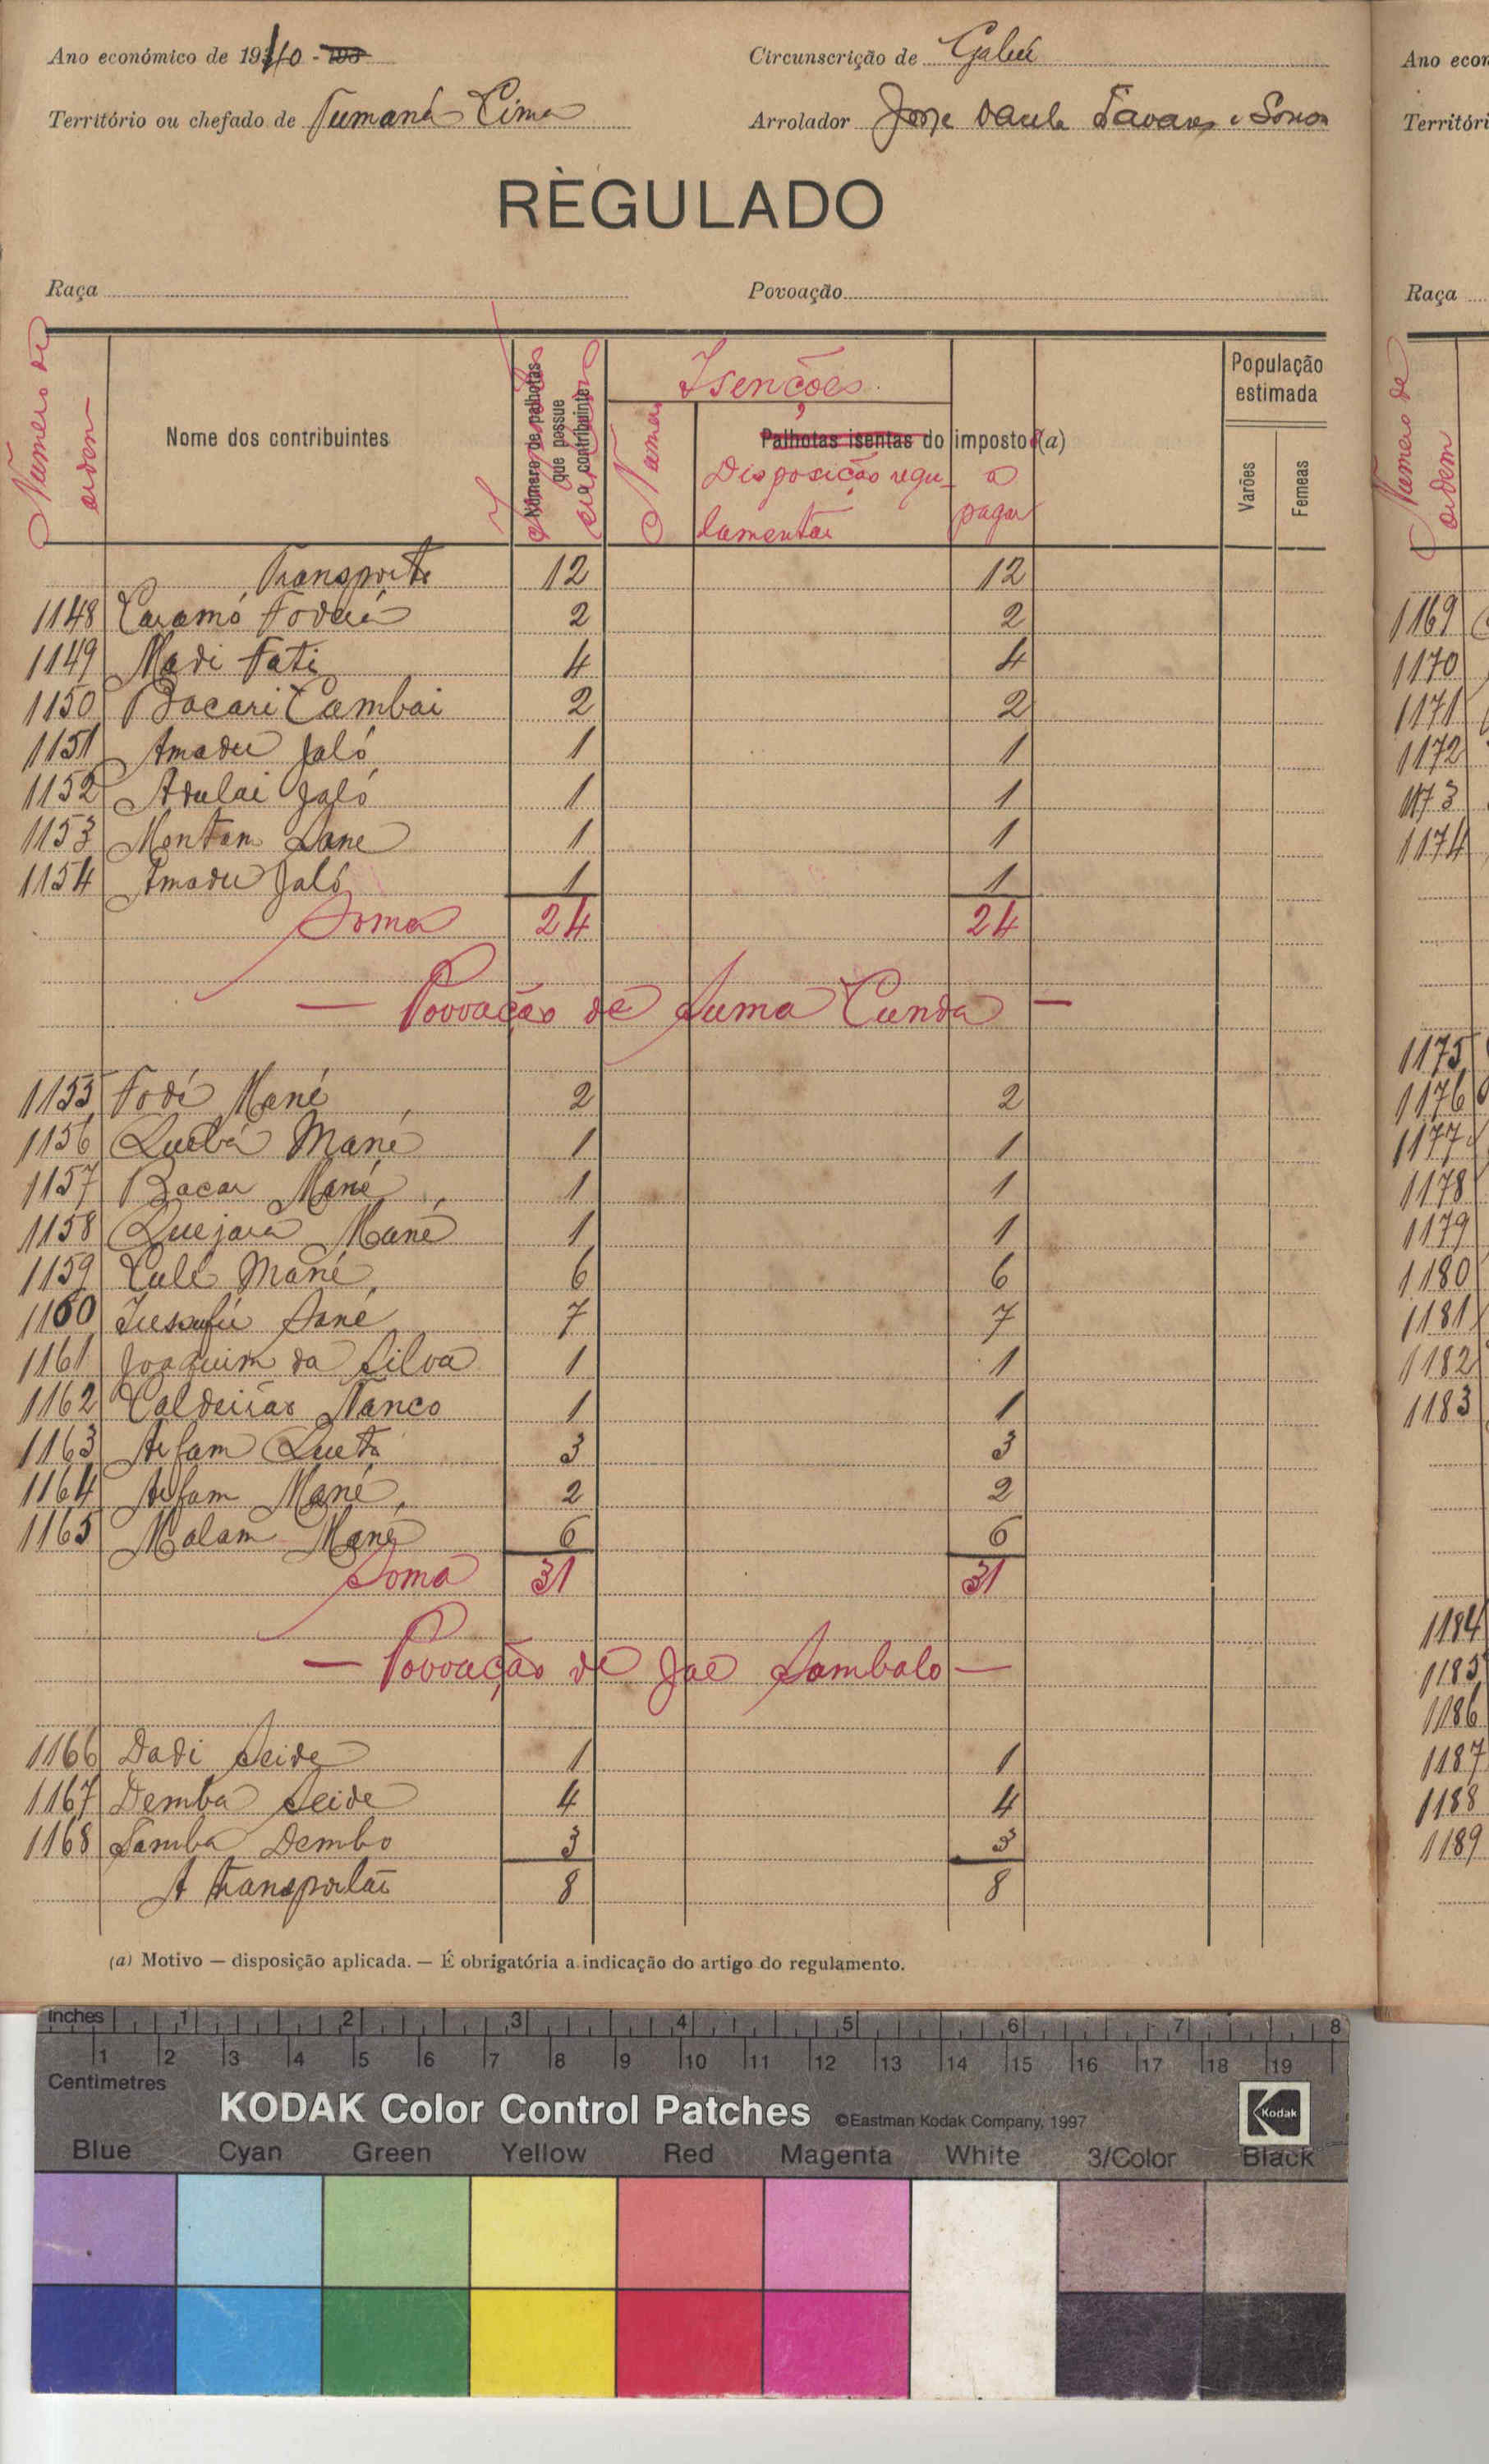 Ano económico de 1940 - 193
Circunscrição de Gabú
Território ou chefado de Tumaná Cima
Arrolador José Paula Tavares e Sousa
RÈGULADO
Raça
Povoação
Numero de ordem
Nome dos contribuintes
Número de palhotas que possue o contribuinte
Isenções
Numero
Palhotas isentas do imposto (a)
Disposição regulamentar
a pagar
População estimada
Varões
Femeas
Transporte 12 12
1148 Caramó Foderá 2 2
1149 Madi Fati 4 4
1150 Bacari Cambai 2 2
1151 Amadu Jaló 1 1
1152 Adulai Jaló 1 1
1153 Montam Sane 1 1
1154 Amadu Jaló 1 1
Soma 24 24
— Povoação de Suma Cunda —
1155 Fodi Mané 2 2
1156 Quebá Mané 1 1
1157 Bacar Mané 1 1
1158 Quejara Mané 1 1
1159 Culé Mané 6 6
1160 Iussufú Sané 7 7
1161 Joaquim da Silva 1 1
1162 Caldeirão Nanco 1 1
1163 Arfam Queta 3 3
1164 Arfam Mané 2 2
1165 Malam Mané 6 6
Soma 31 31
— Povoação de Jae Sambalo —
1166 Dadi Seide 1 1
1167 Demba Seide 4 4
1168 Samba Dembo 3 3
A transportar 8 8
(a) Motivo — disposição aplicada. — É obrigatória a indicação do artigo do regulamento.
Ano econ
Territóri
Raça
Numero de ordem
1169
1170
1171
1172
1173
1174
1175
1176
1177
1178
1179
1180
1181
1182
1183
1184
1185
1186
1187
1188
1189
Inches 1 2 3 4 5 6 7 8
1 2 3 4 5 6 7 8 9 10 11 12 13 14 15 16 17 18 19
Centimetres
KODAK Color Control Patches ©Eastman Kodak Company, 1997 Kodak
Blue Cyan Green Yellow Red Magenta White 3/Color Black